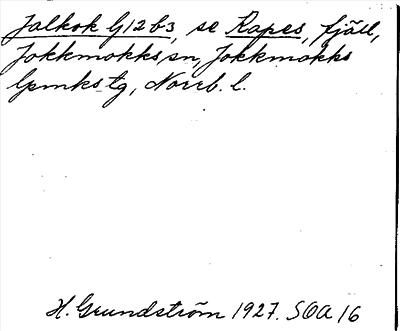 Jalkok G12b3, se Kapes, fjäll,
Jokkmokks sn, Jokkmokks
lpmks tg, Norrb. l.
H. Grundström 1927. SOA 16